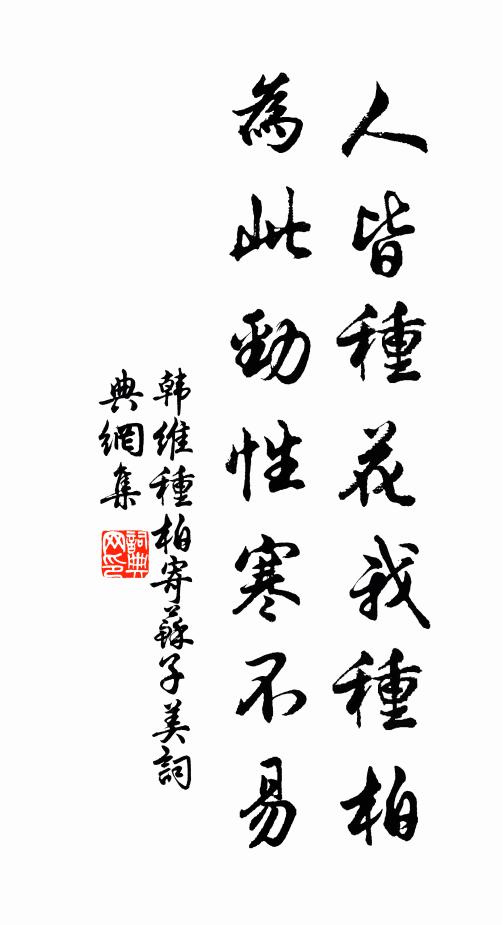 人皆種花我種柏
為此勁性寒不易
韩維種柏寄蘇子美詞
典網集
詞典
网印